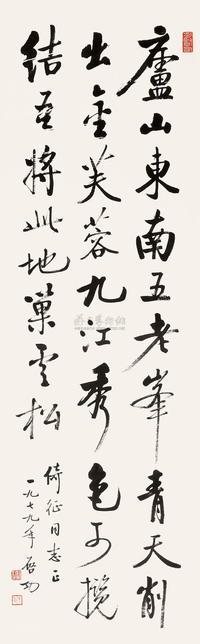 廬山東南五老峯青天削
出金芙蓉九江秀色可攬
結吾將此地巢雲松
倚征同志正
一九七九年啓功